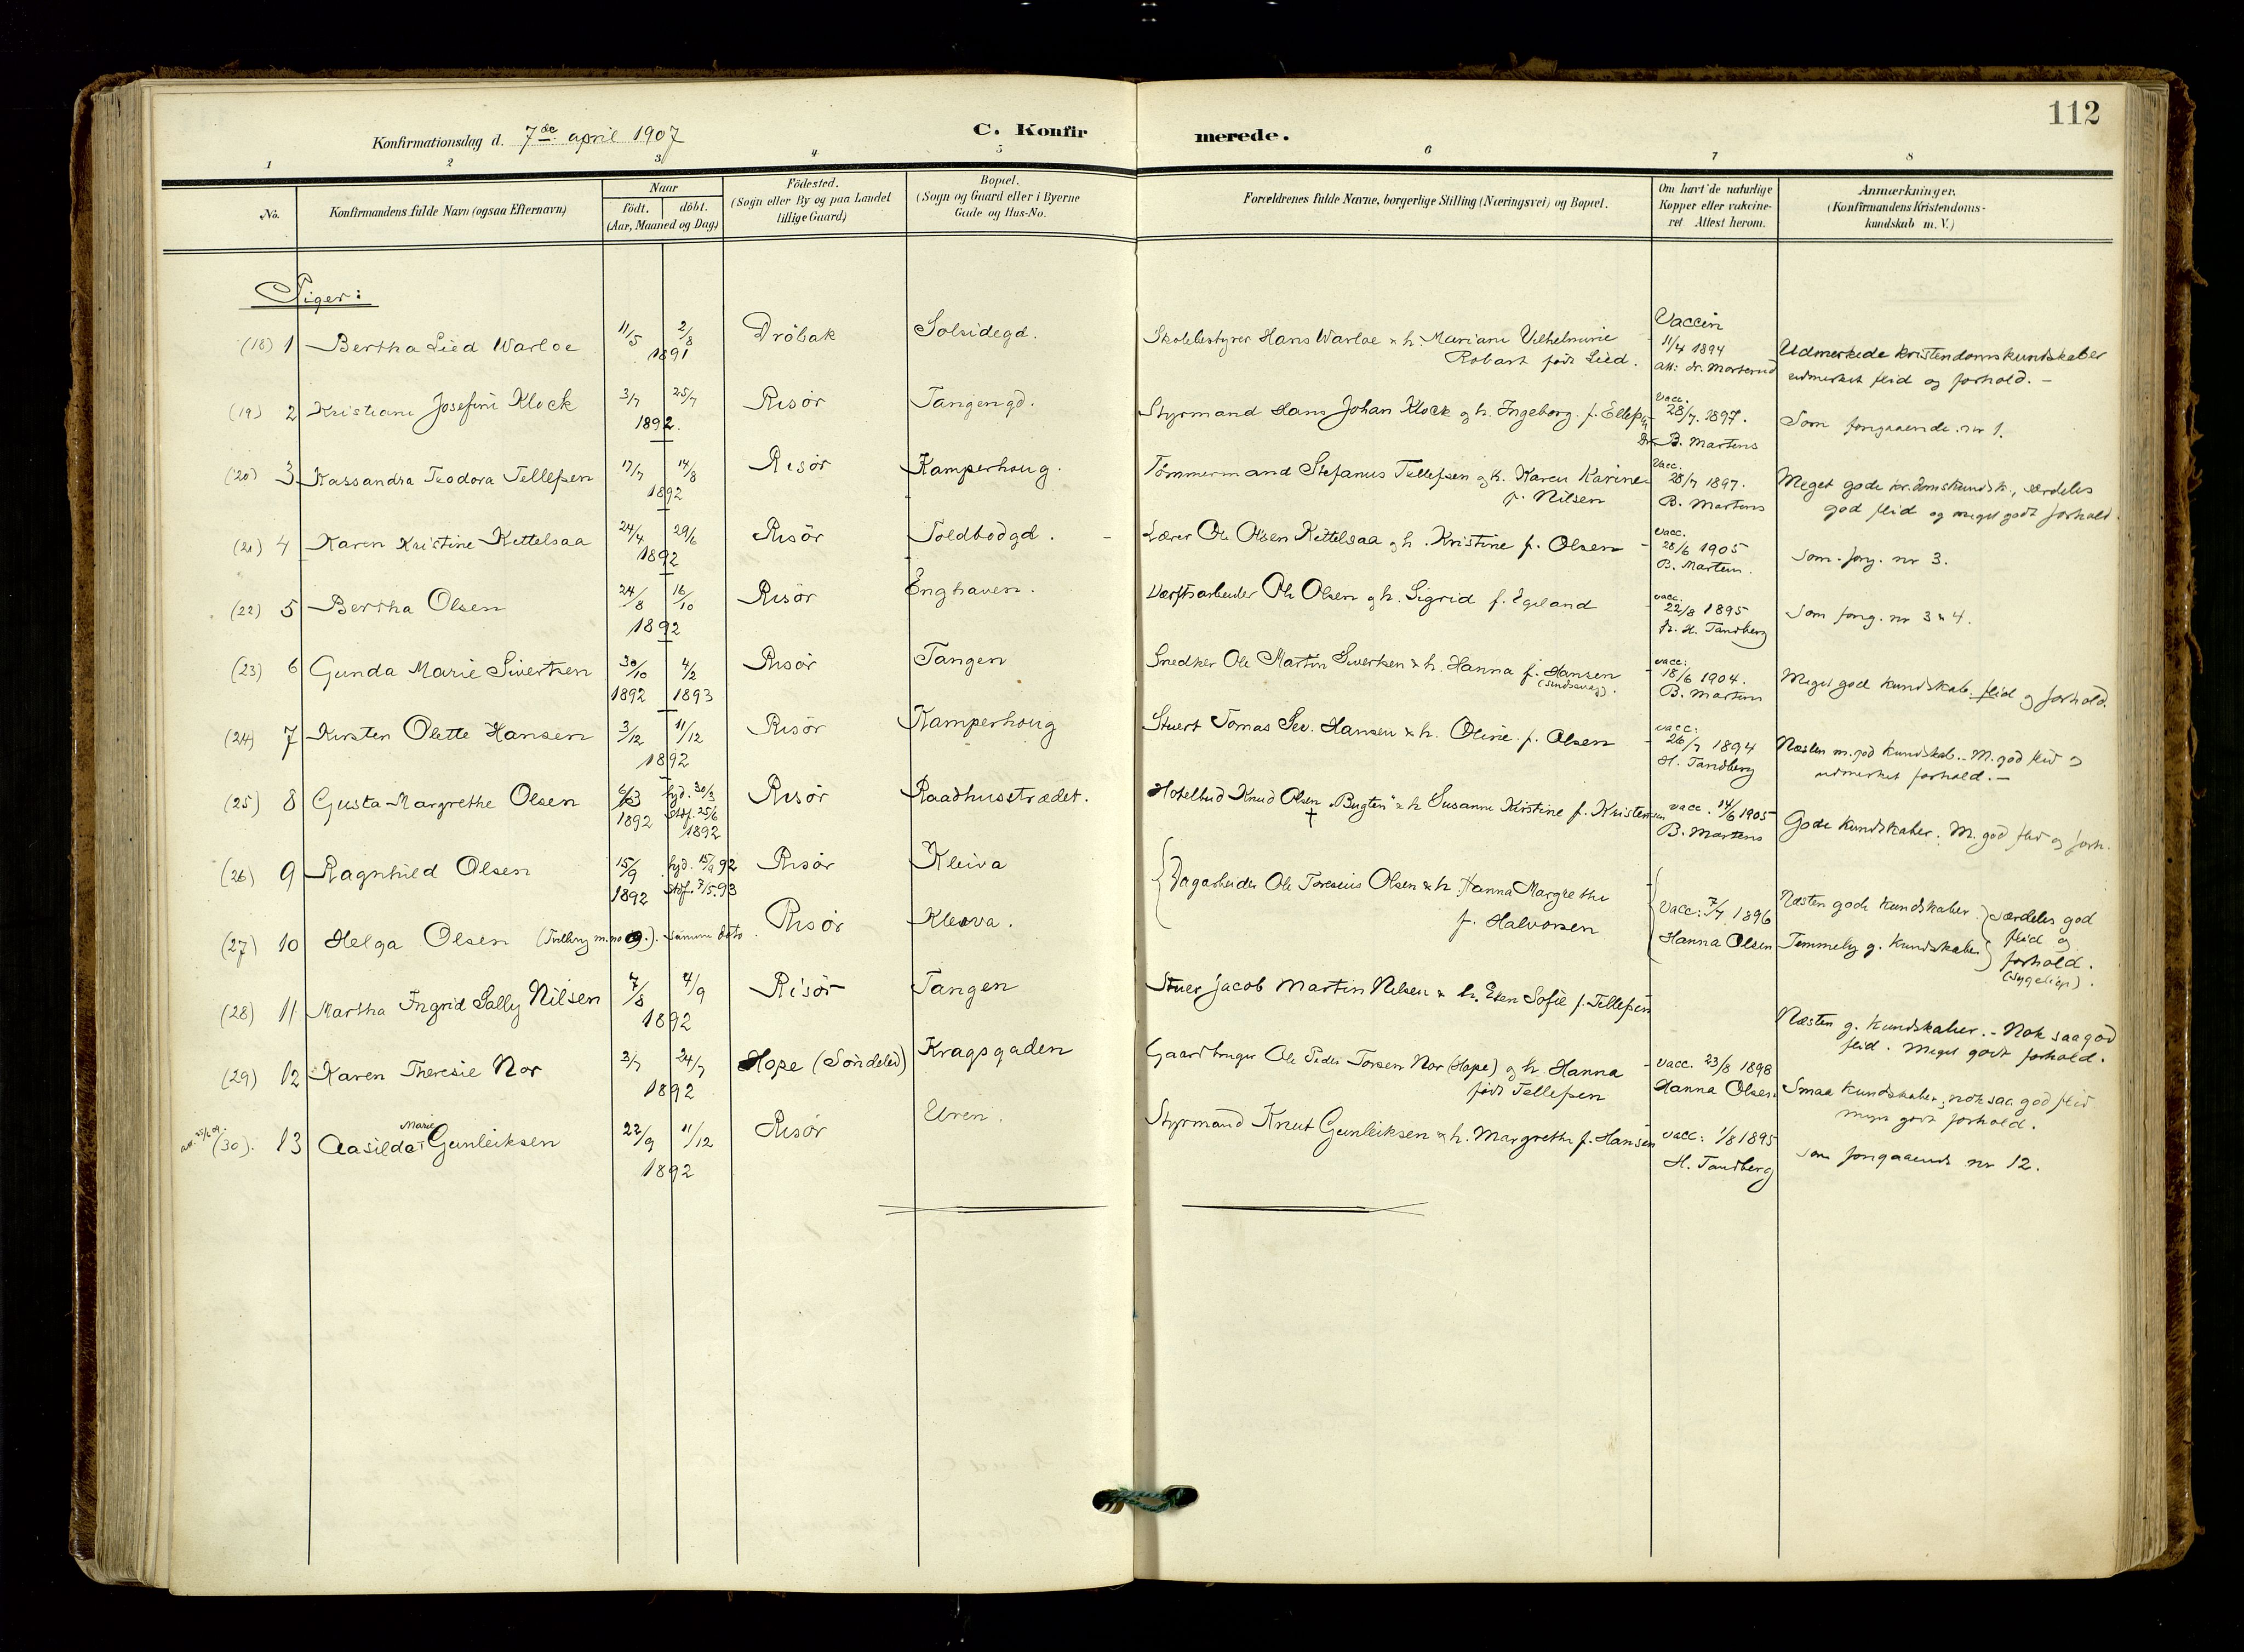 112
Konfirmationsdag d. 7de april 1907
C. Konfirmerede.
1 2 3 4 5 6 7 8
No.
Konfirmandens fulde Navn (ogsaa Efternavn)
Naar
födt. döbt.
(Aar, Maaned og Dag)
Födested.
(Sogn eller By og paa Landet
tillige Gaard)
Bopæl.
(Sogn og Gaard eller i Byerne
Gade og Hus-No.
Forældrenes fulde Navne, borgerlige Stilling (Næringsvei) og Bopæl.
Om havt de naturlige
Kopper eller vakcine-
ret Attest herom.
Anmærkninger.
(Konfirmandens Kristendoms-
kundskab m. V.)
Piger:
(18) 1 Bertha Lied Warloe 11/5 2/8 1891 Dröbak Solsidegd.
Skolebestyrer Hans Warloe & h. Mariane Vilhelmine
Robart født Lied.
Vaccin
11/4 1894
Udmerkede kristendomskundskaber
udmerket flid og forhold. –
(19) 2 Kristiane Josefine Klock 3/7 25/7 1892. Risör Tangengd.
Styrmand Hans Johan Klock og h. Ingeborg f. Ellefsen
vacc.
28/7 1897.
B. Martens
Som foregaaende nr 1.
(20) 3 Kassandra Teodora Tellefsen 17/7 14/8 1892 Risör Kamperhoug.
Tömmermand Stefanus Tellefsen og h. Karen Karine
f. Nilsen
vacc.
28/7 1897.
B. Martens
Meget gode kr.domskundsk., særdeles
god flid og meget godt forhold.
(21) 4 Karen Kristine Kittelsaa 24/4 29/6 1892 Risör Toldbodgd.
Lærer Ole Olsen Kittelsaa og h. Kristine f. Olsen
vacc.
28/6 1905
B. Martens.
Som forg. nr 3.
(22) 5 Bertha Olsen 24/8 16/10 1892 Risör Enghaven.
Værftsarbeider Ole Olsen og h. Sigrid f. Egeland
vacc.
22/8 1895
H. Tandberg
Som forg. nr 3 & 4.
(23) 6 Gunda Marie Sivertsen 30/10 1892 4/2 1893 Risör Tangen
Snedker Ole Martin Sivertsen & h. Hanna f. Hansen
vacc:
18/6 1904.
B. Martens
Meget god kundskab. flid og forhold.
(24) 7 Kirsten Olette Hansen 3/12 11/12 1892 Risör Kamperhoug
Stuert Tomas Sev. Hansen & h. Oline f. Olsen
vacc:
26/7 1894
H. Tandberg
Næsten m. god kundskab. – M. god flid og
udmerket forhold. –
(25) 8 Gusta Margrethe Olsen 1892 hjd. 30/3 Stdf. 25/6 1892 Risör Raadhusstrædet.
Hotelbud Knud Olsen "Bugten" & h. Susanne Kirstine f. Kristensen
†
vacc. 14/6 1905
B. Martens
Gode kundskaber. M. god flid og forh.
(26) 9 Ragnhild Olsen 15/9 1892 hjd. 15/9 92 Stdf. 7/5 93 Risör Kleiva
Dagarbeider Ole Toresius Olsen & h. Hanna Margrethe
f. Halvorsen
vacc: 7/7 1896
Hanna Olsen
Næsten gode kundskaber.
særdeles god
flid og
forhold.
(27) 10 Helga Olsen (Tvilling m. no 9.). samme dato. Risör Kleiva.
Temmelig g. kundskaber
(sygelig).
(28) 11 Martha Ingrid Sally Nilsen 7/8 4/9 1892 Risör Tangen
Stuer Jacob Martin Nilsen & h. Elen Sofie f. Tellefsen
Næsten g. kundskaber. – Nok saa god
flid. Meget godt forhold.
(29) 12 Karen Theresie Nor 3/7 24/7 1892 Hope (Söndeled) Kragsgaden
Gaardbruger Ole Peder Torsen Nor (Hope) og h. Hanna
født Tellefsen
vacc. 23/8 1898
Hanna Olsen
Smaa kundskaber, nok saa god flid
meget godt forhold.
(30). 13 Aasilda Marie Gunleiksen 22/9 11/12 1892 Risör Uren.
Styrmand Knut Gunleiksen & h. Margrethe f. Hansen
vacc: 1/8 1895
H. Tandberg
som foregaaende nr 12.